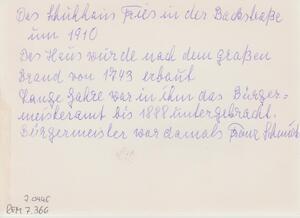 Das Schuhhaus Fries in der Backstraße
um 1910
Das Haus wurde nach dem großen
Brand von 1743 erbaut
Lange Jahre war in ihm das Bürger=
meisteramt bis 1888 untergebracht.
Bürgermeister war damals Franz Schmidt
J 0446
RFM 7.366